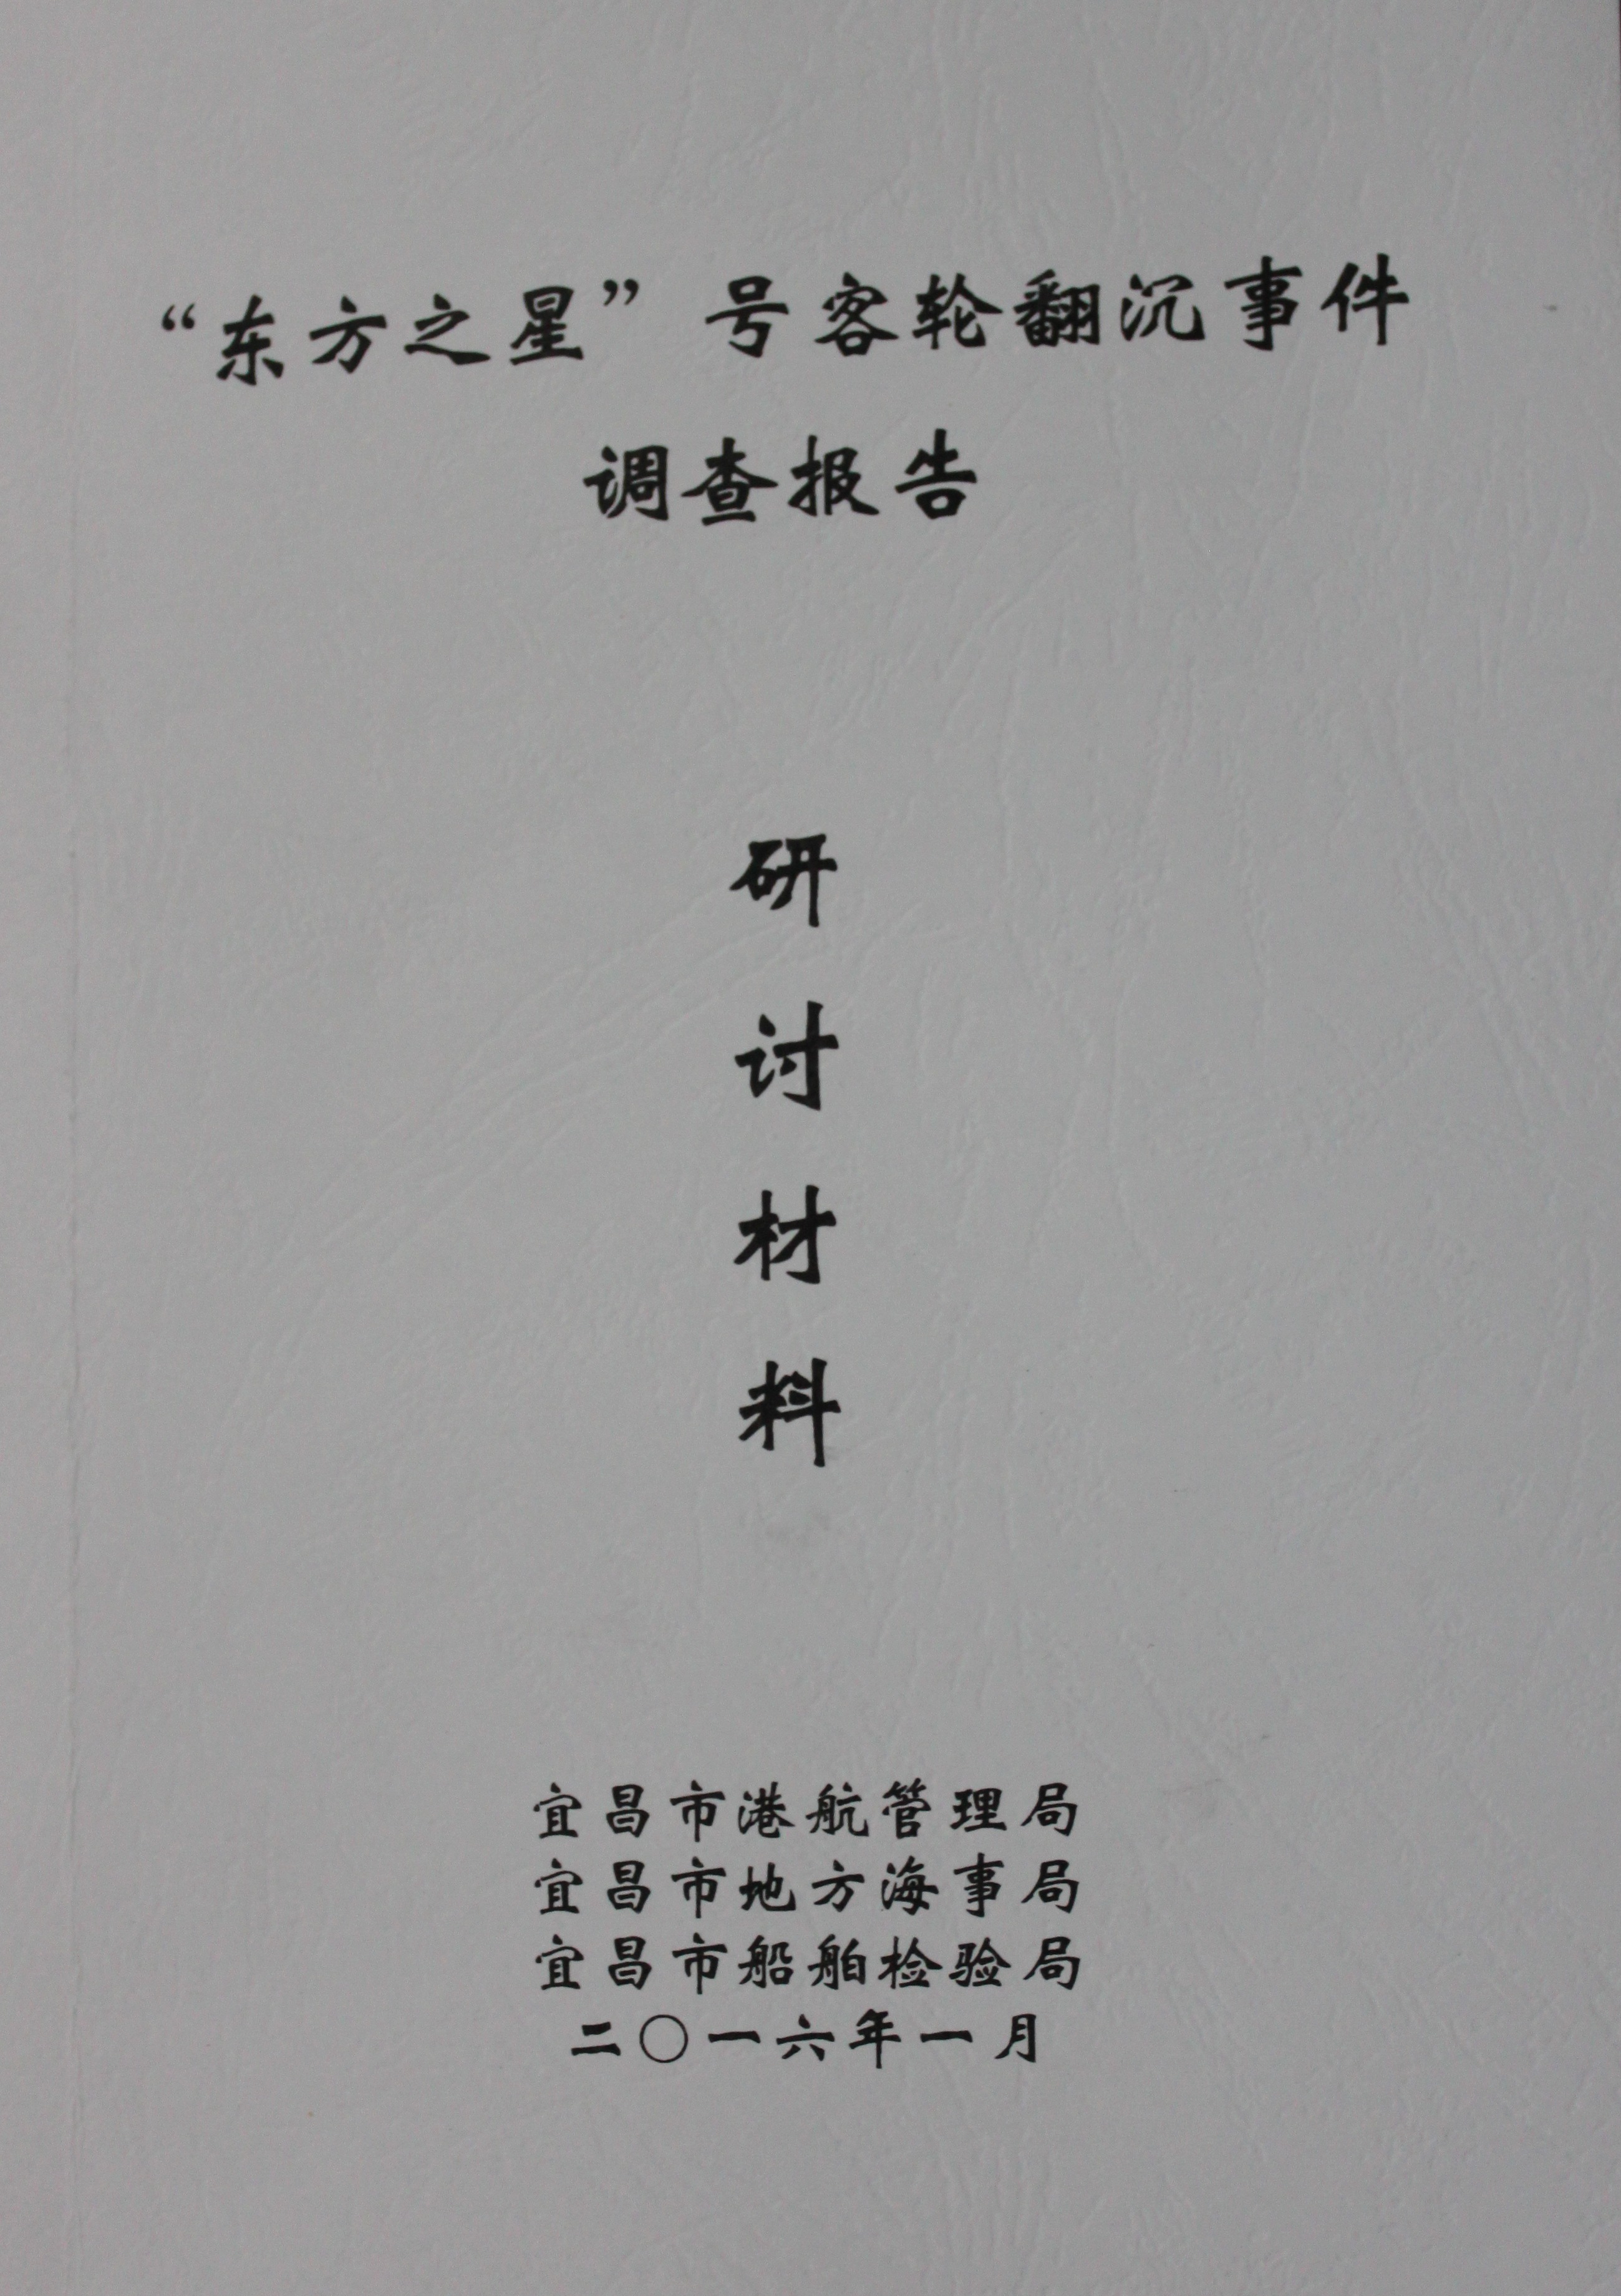 “东方之星”号客轮翻沉事件
调查报告
研
讨
材
料
宜昌市港航管理局
宜昌市地方海事局
宜昌市船舶检验局
二〇一六年一月